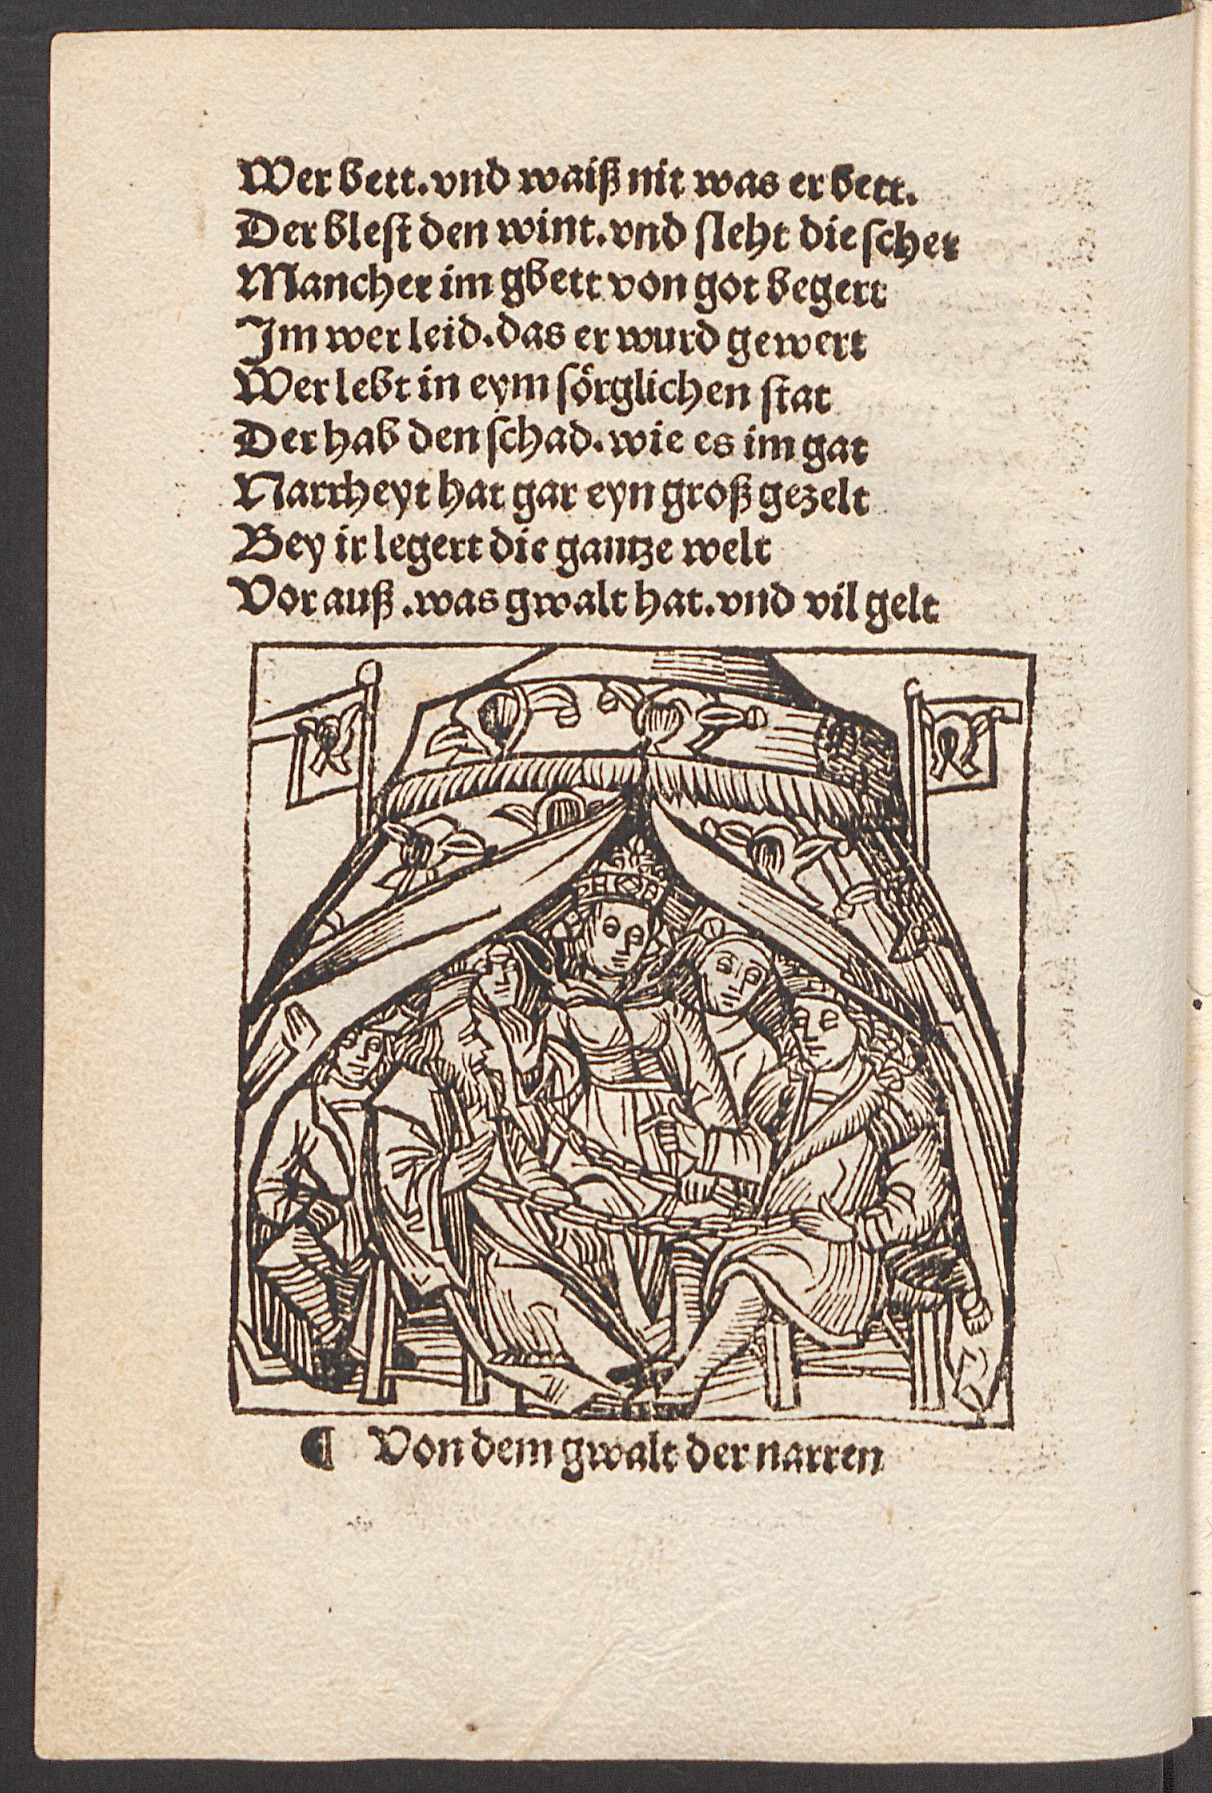 Wer bett. vnd waiß nit was er bett.
Der blest den wint. vnd sleht die schet
Mancher im gbett von got begert
Im wer leid. das er wurd gewert
Wer lebt in eym sörglichen stat
Der hab den schad. wie es im gat
Narrheyt hat gar eyn groß gezelt
Bey ir legert die gantze welt
Vor auß. was gwalt hat. vnd vil gelt
¶ Von dem gwalt der narren